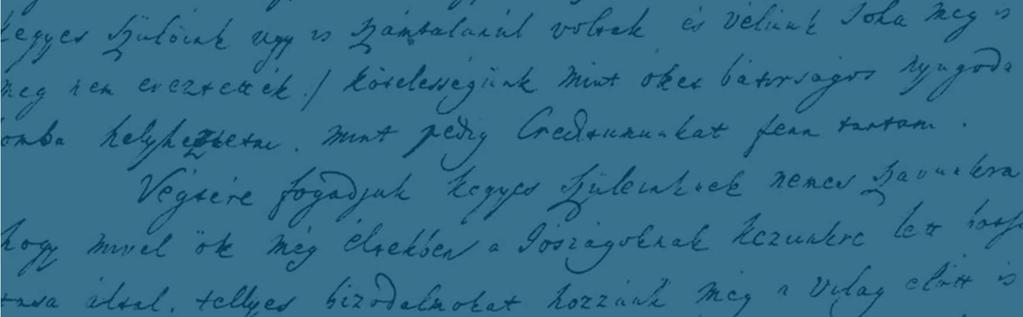 kegyes Szülöink ugy is Számtalanúl voltak és Vélünk Soha meg is
meg nem éreztették./ kötelességünk mint öket bátorságos nyugoda
omba helyheztetni. mint pedig Creditumunkat fenn tartani.
Végsöre fogadjuk kegyes Szüleinknek nemes Szavunkra
hogy mivel ök még éltekben a Jószágoknak kezünkre lett
által. tellyes bizodalmokat hozzánk még a Világ elött is